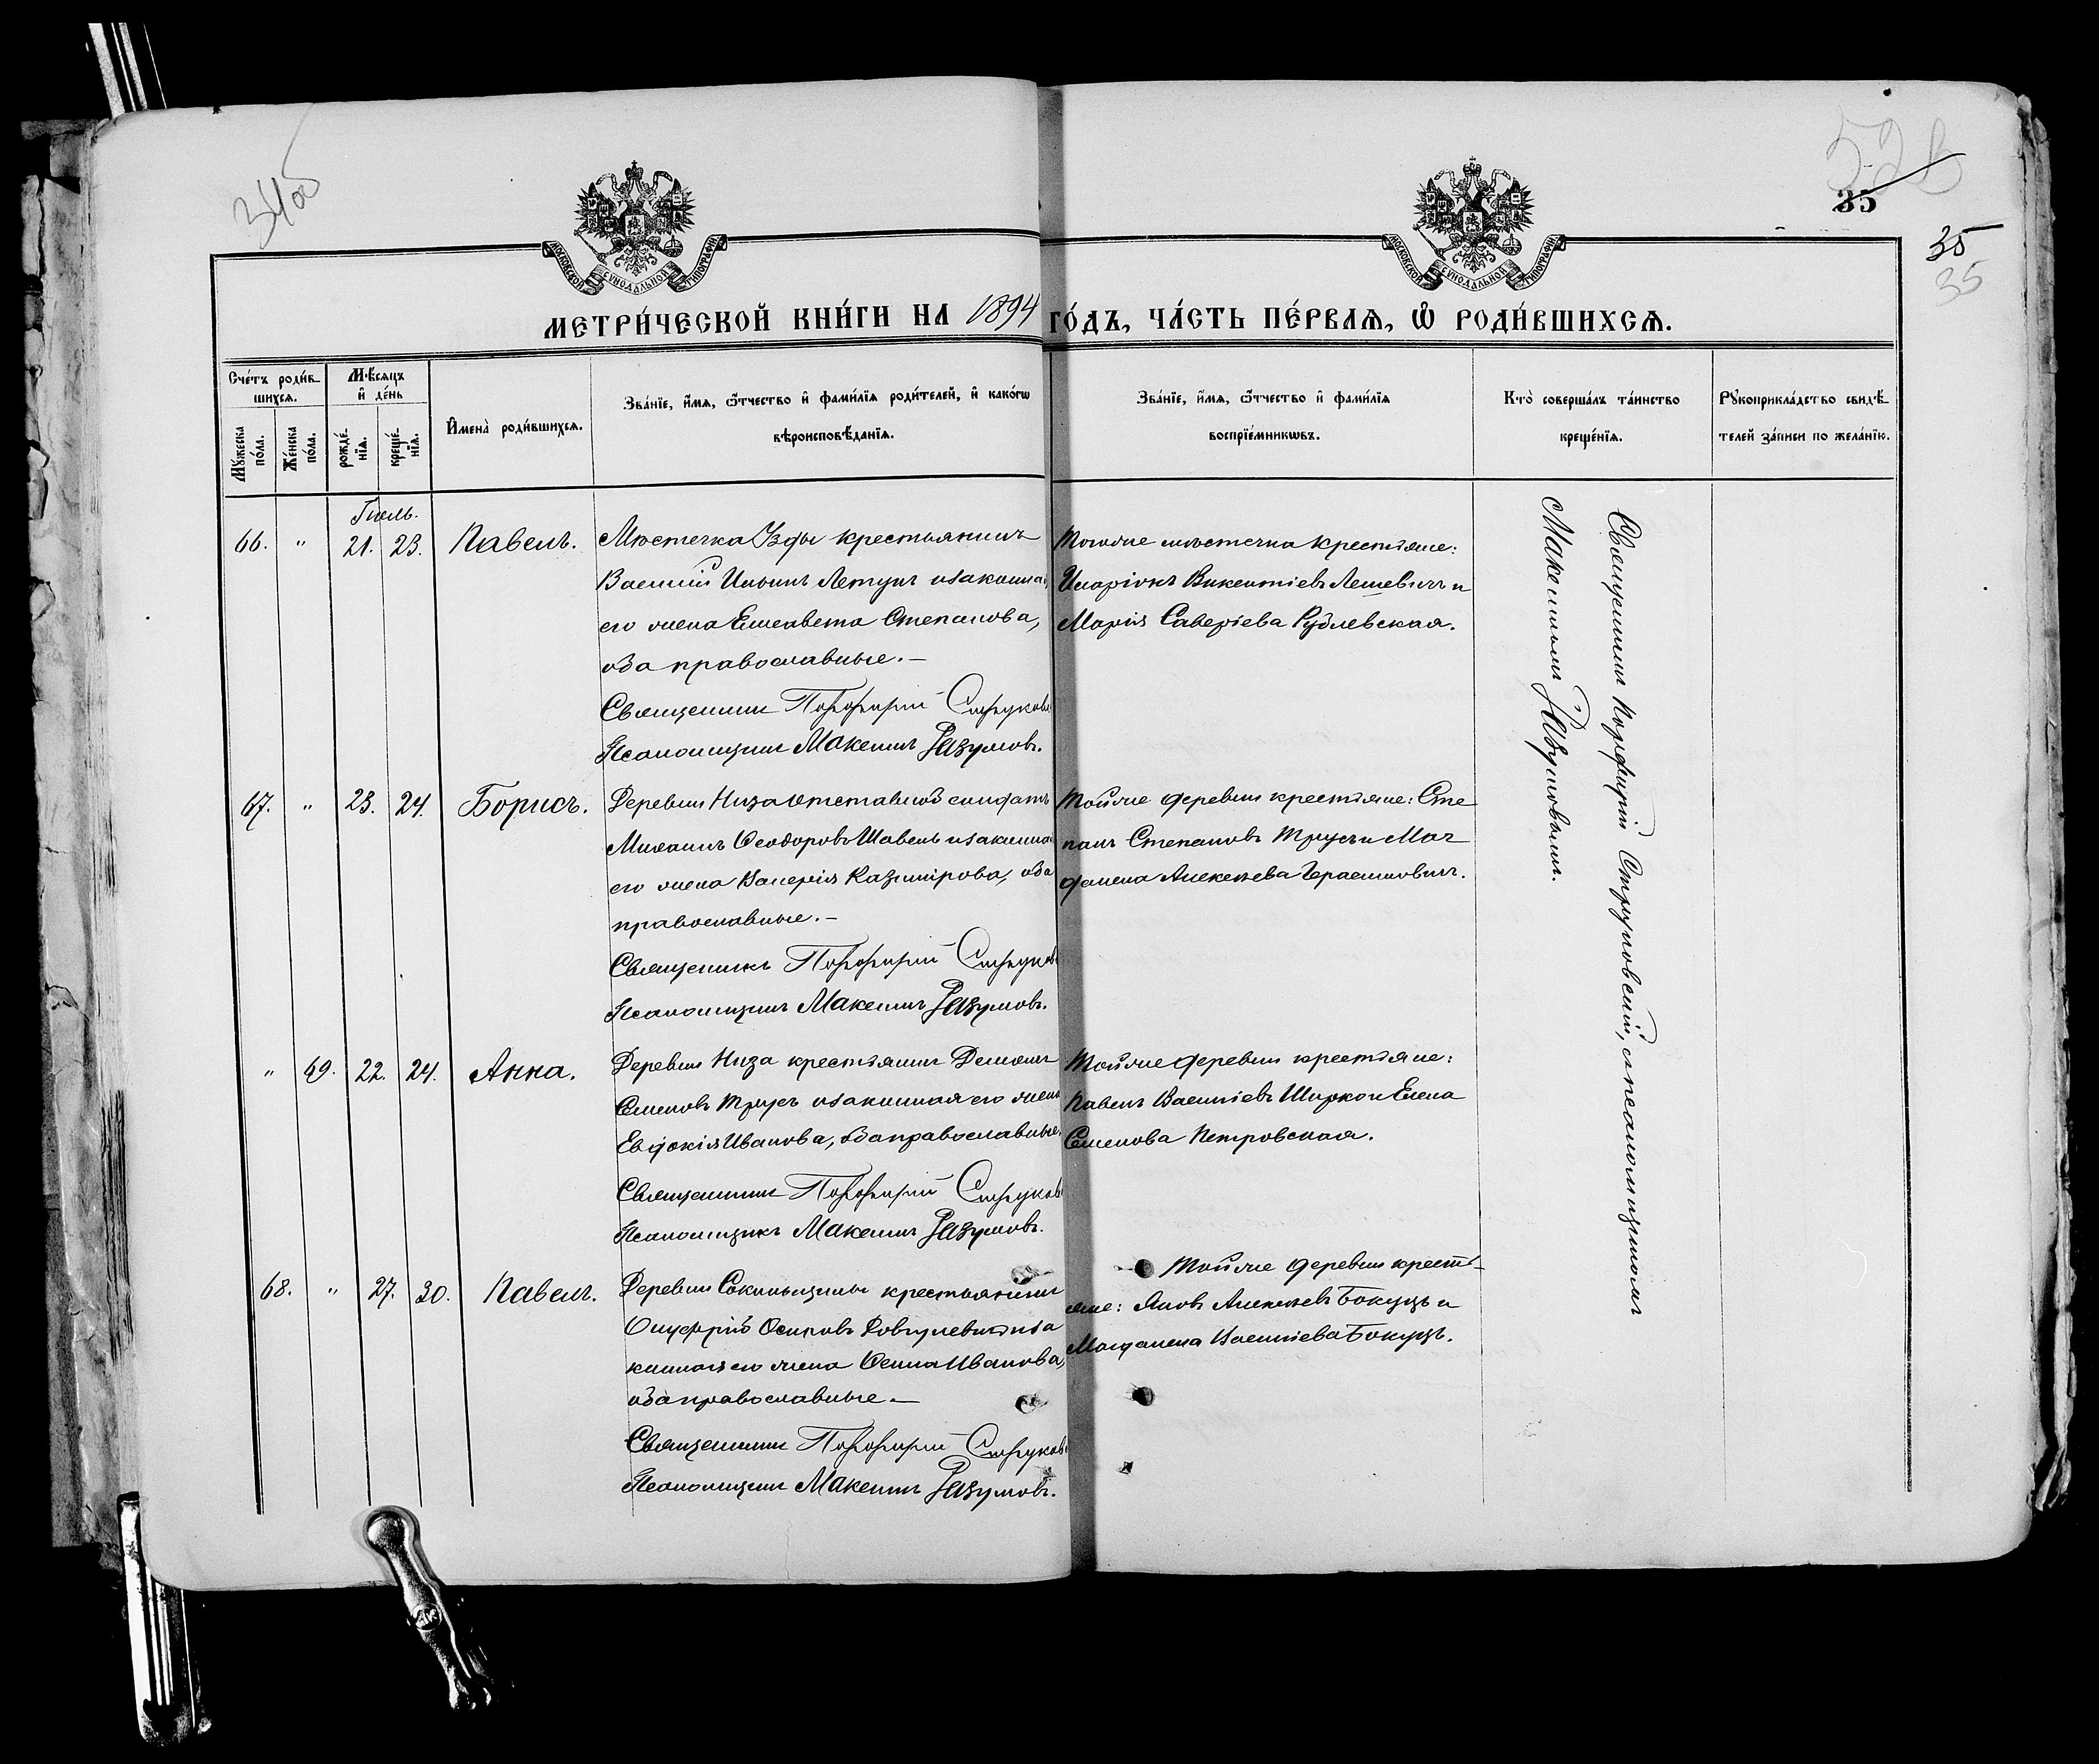 3400
35
35
35
МОСКОВСКОЙ СУНОДАЛЬНОЙ ТИПОГРАФІИ
МОСКОВСКОЙ СУНОДАЛЬНОЙ ТИПОГРАФІИ
МЕТРИ́ЧЕСКОЙ КНИ́ГИ НА 1894 ГО́ДЪ, ЧА́СТЬ ПЕ́РВАѦ, Ѽ РОДИ́ВШИХСѦ.
Сче́тъ роди́вшихсѧ.
Мꙋ́жеска по́ла.
Же́нска по́ла.
Мѣ́сѧцъ и҆ де́нь
рожде́нїѧ.
креще́нїѧ.
И҆мена̀ роди́вшихсѧ.
Зва́нїе, и҆́мѧ, ѻ҆́тчество и҆ фами́лїѧ роди́телей, и҆ како́гѡ
вѣроисповѣ́данїѧ.
Зва́нїе, и҆́мѧ, ѻ҆́тчество и҆ фами́лїѧ
воспрїе́мникѡвъ.
Кто̀ соверша́лъ та́инство
креще́нїѧ.
Рꙋкоприкла́дство свидѣ́
телей за́писи по жела́нїю.
Іюль.
66. " 21. 23. Павелъ.
Мѣстечка Узды крестьянинъ
Василій Ильинъ Летунъ и законная
его жена Елисавета Степанова,
оба православные.—
Священникъ Порфирій Струков
Псаломщикъ Максимъ Разумовъ.
Тогоже мѣстечка крестьяне:
Иларіонъ Викентіевъ Лешевичъ и
Марія Саверіева Рублевская.
67. " 23. 24. Борисъ.
Деревни Низа отставной солдатъ
Михаилъ Ѳеодоровъ Шавель и законная
его жена Валерія Казимірова, оба
православные.—
Священникъ Порфирій Струков
Псаломщикъ Максимъ Разумовъ.
Тойже деревни крестьяне: Сте
панъ Степановъ Трусъ и Маг
далена Алексѣева Герасимовичъ.
" 49. 22. 24. Анна.
Деревни Низа крестьянинъ Демьянъ
Семеновъ Трусъ и законная его жена
Евдокія Иванова, оба православные.
Священникъ Порфирій Струков
Псаломщикъ Максимъ Разумовъ.
Тойже деревни крестьяне:
Павелъ Василіевъ Ширко и Елена
Семенова Петровская.
68. " 27. 30. Павелъ.
Деревни Саковщины крестьянинъ
Онуфрій Осиповъ и за
конная его жена Иванова,
оба православные.—
Священникъ Порфирій Струков
Псаломщикъ Максимъ Разумовъ.
Тойже деревни кресть
яне: Яковъ Алексѣевъ Бокуцъ и
Магдалена Василіева Бокуцъ.
Священникъ Порфирій Струковскій, съ псаломщикомъ
Максимомъ Разумовымъ.